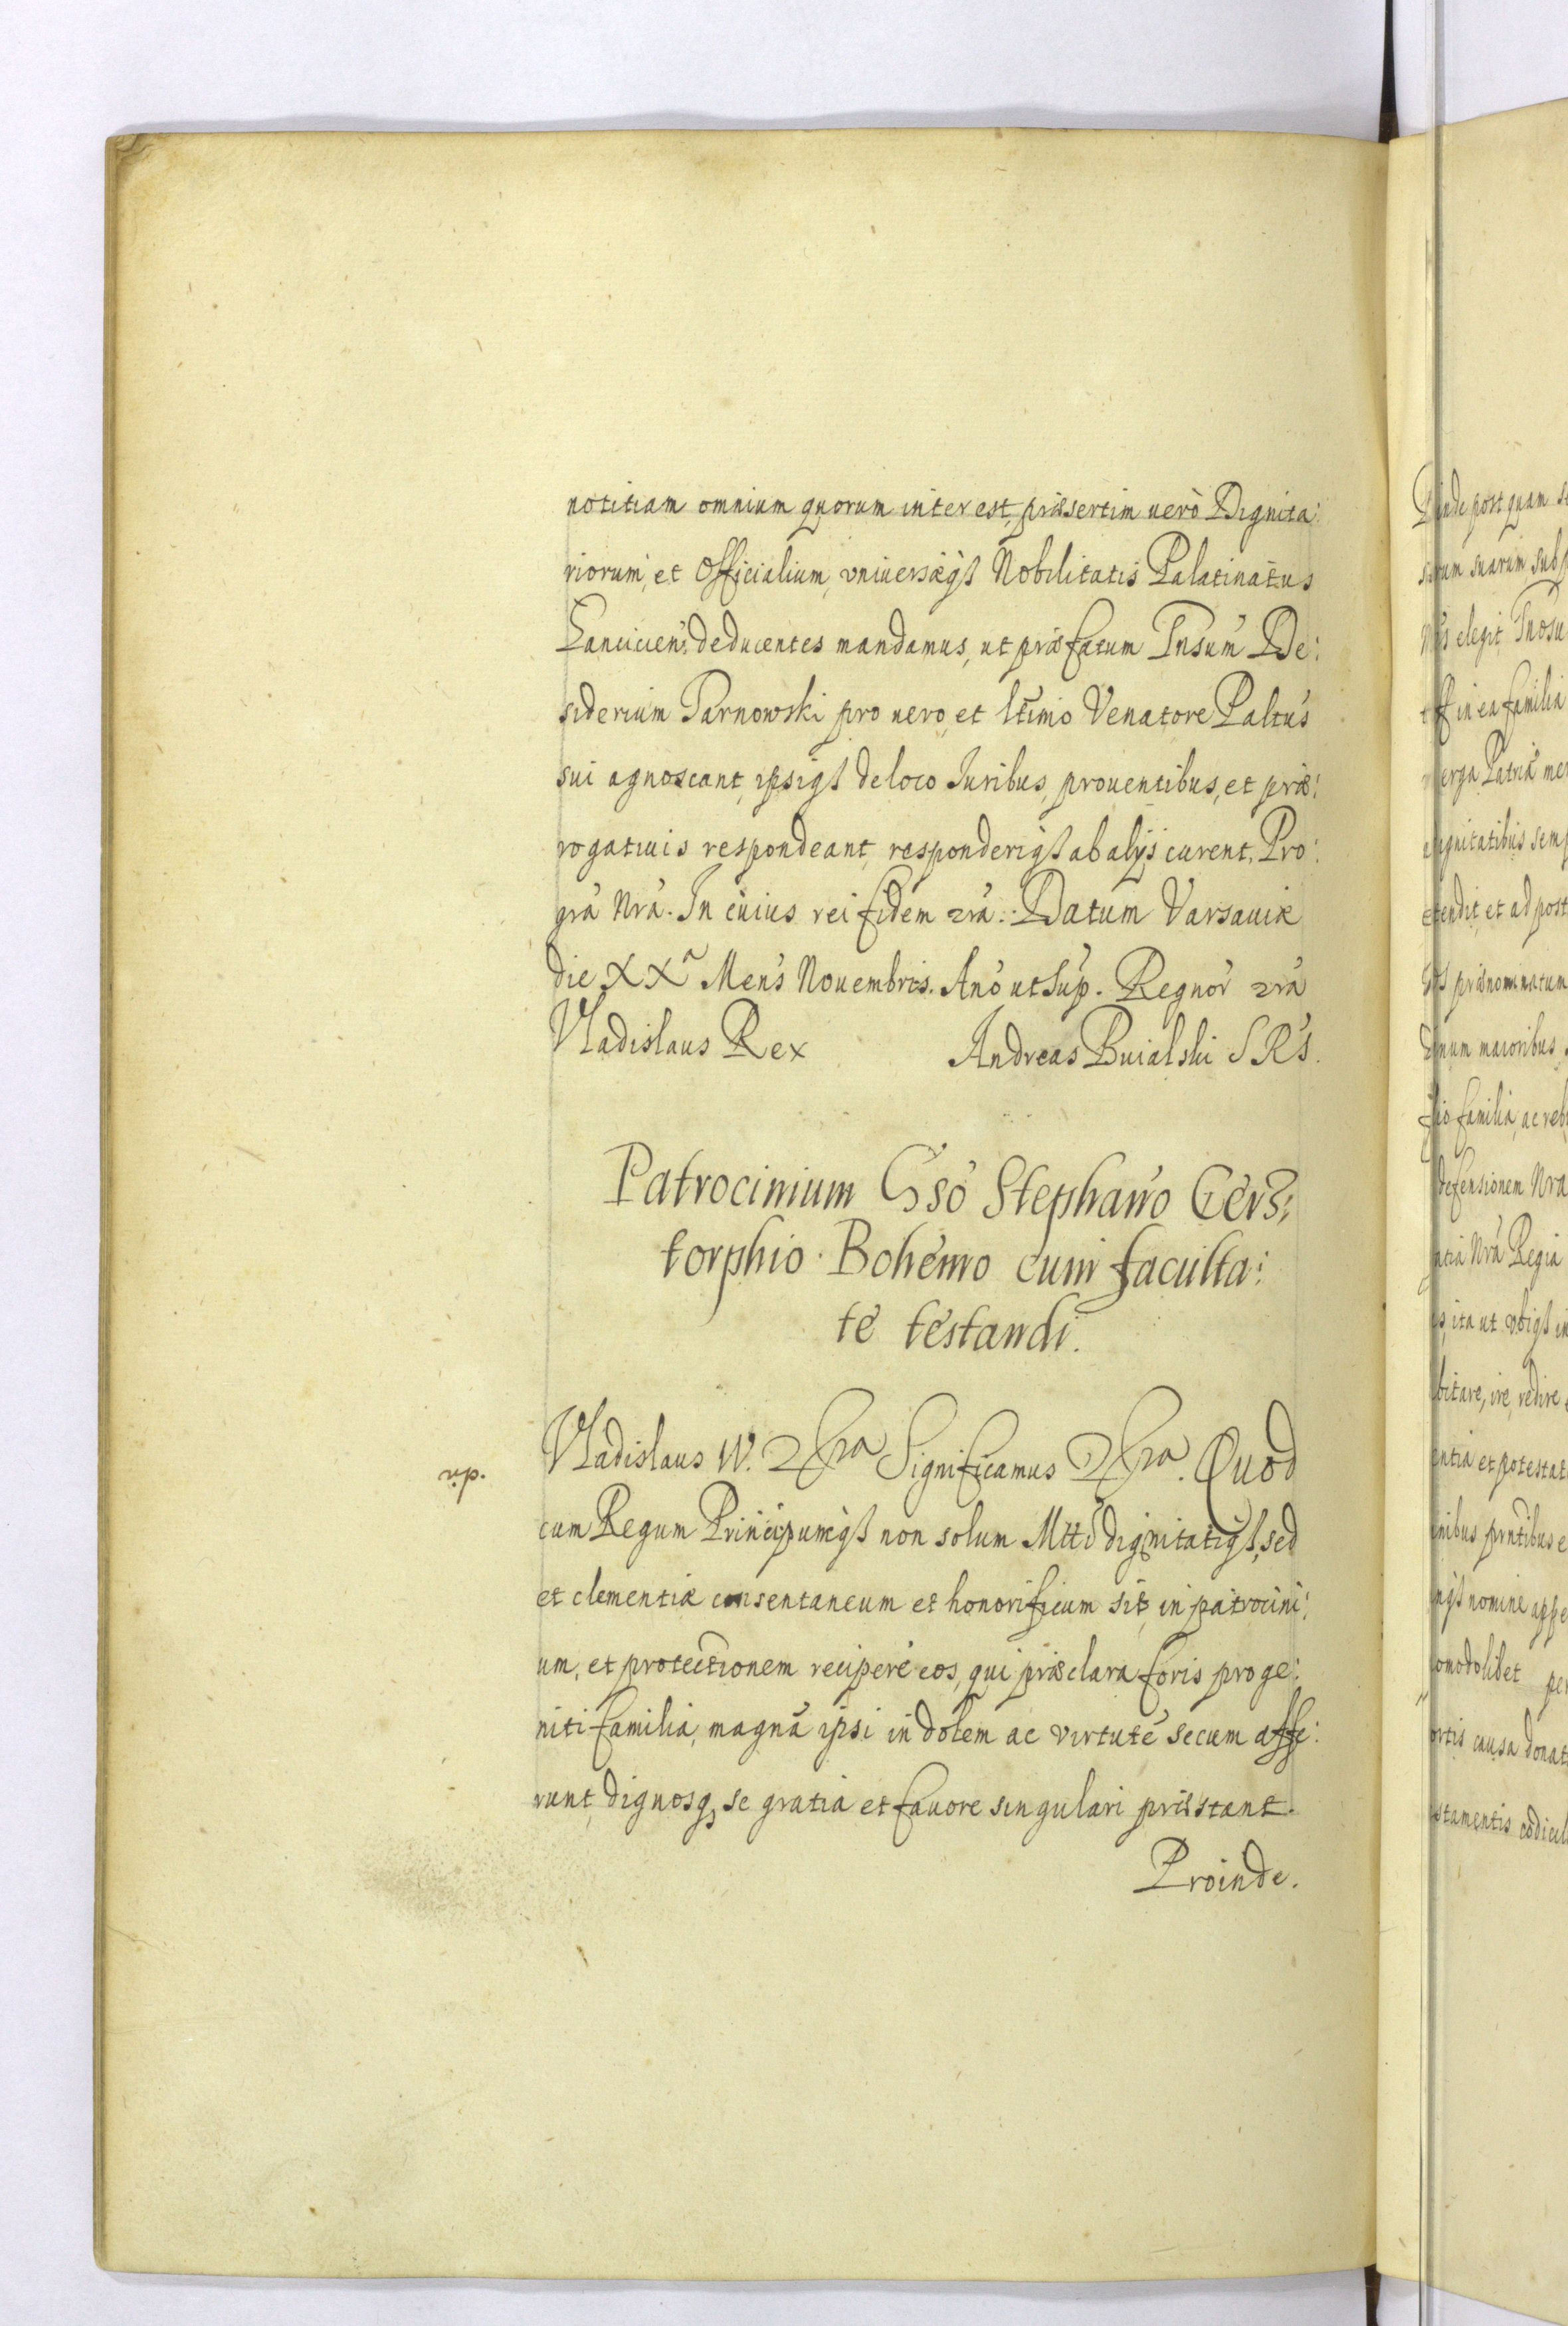 notitiam omnium quorum interest, præsertim uerò Dignita:
riorum, et Officialium, vniuersæq3 Nobilitatis Palatinatus
Lancicien̄: deducentes mandamus, ut præfatum Gn̄sum De:
siderium Tarnowski pro uero, et lt̄imo Venatore Paltūs
sui agnoscant, ipsiq3 de loco Iuribus, prouentibus, et præ:
rogatiuis respondeant, responderiq3 ab alÿs curent. Pro
grā Nrā. In cuius rei fidem etrā. Datum Varsauiæ
die XXa Mens̄ Nouembris. Ano ut sup̄. Regnor̄ etrā
Vladislaus Rex Andreas Buialski SRs.
Patrocinium Gn̄so Stephano Gers:
torphio Bohemo cum faculta:
te testandi.
Vladislaus IV. etra Significamus etra. Quod
cum Regum Principumq3 non solum Mtti dignitatiq3, sed
et clementiæ consentaneum et honorificum sit, in patrocini:
um, et protectionem recipere eos, qui præclara foris proge:
niti familia, magnā ipsi indolem ac virtutē secum affe:
runt, dignosq3 se gratia et fauore singulari præstant.
Proinde.
Proinde post quam
suarum
elegit
in ea familia
erga Patriā
dignitatibus
et ad post
prænominatum
maioribus
familia, ac
defensionem Nra
Nrā Regia
ita ut vbiq3
ire, redire
et potestat
nomine
causa donat